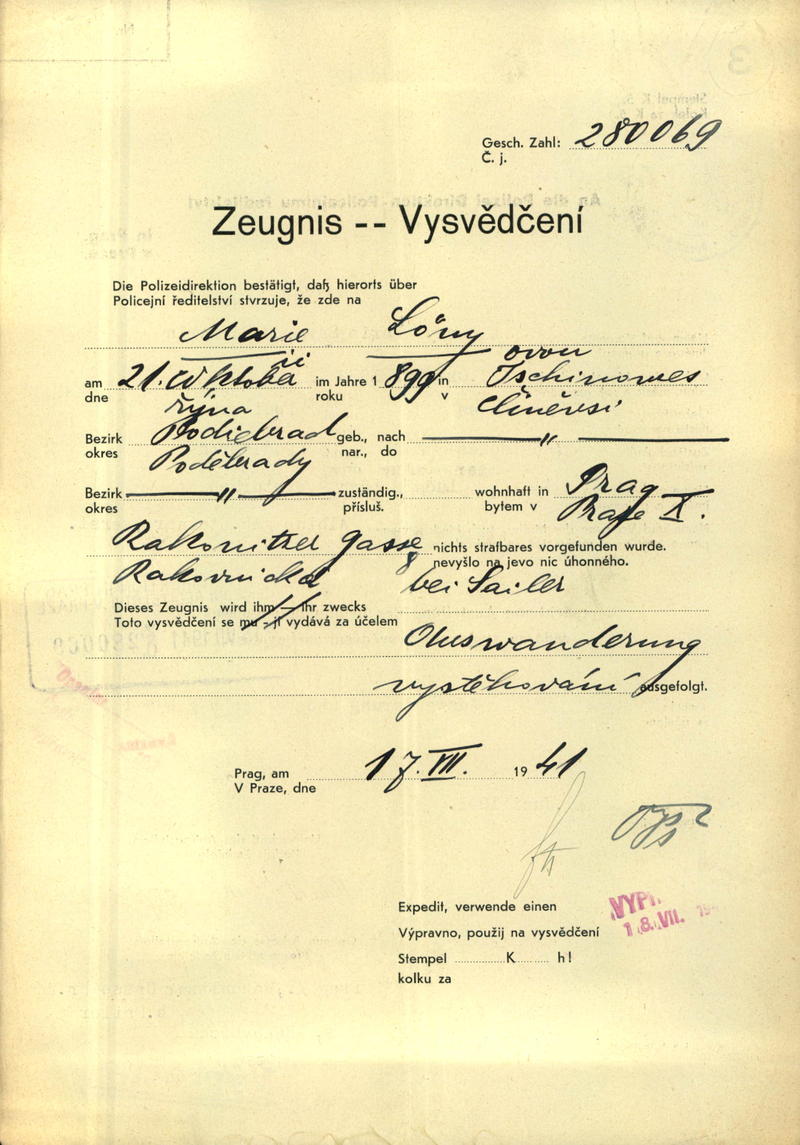 Gesch. Zahl: 280069
Č. j.
Zeugnis -- Vysvědčení
Die Polizeidirektion bestätigt, daß hierorts über
Policejní ředitelství stvrzuje, že zde na
Marie Löwy
ová
am 21. Oktober im Jahre 1899 in Tschinowes
dne října roku v Činěvsi
Bezirk Podiebrad geb., nach — " —
okres Poděbrady nar., do
Bezirk — " — zuständig., wohnhaft in Prag
okres přísluš. bytem v Praze X.
Rakonitzer gasse 8 nichts strafbares vorgefunden wurde.
nevyšlo na jevo nic úhonného.
Rakovnická bei Sailer
Dieses Zeugnis wird ihm – ihr zwecks
Toto vysvědčení se mu – jí vydává za účelem
Auswanderung
vystěhování ausgefolgt.
Prag, am 17. VII. 1941
V Praze, dne
Expedit, verwende einen
Výpravno, použij na vysvědčení
VYPR.
18. VII.
Stempel K h!
kolku za